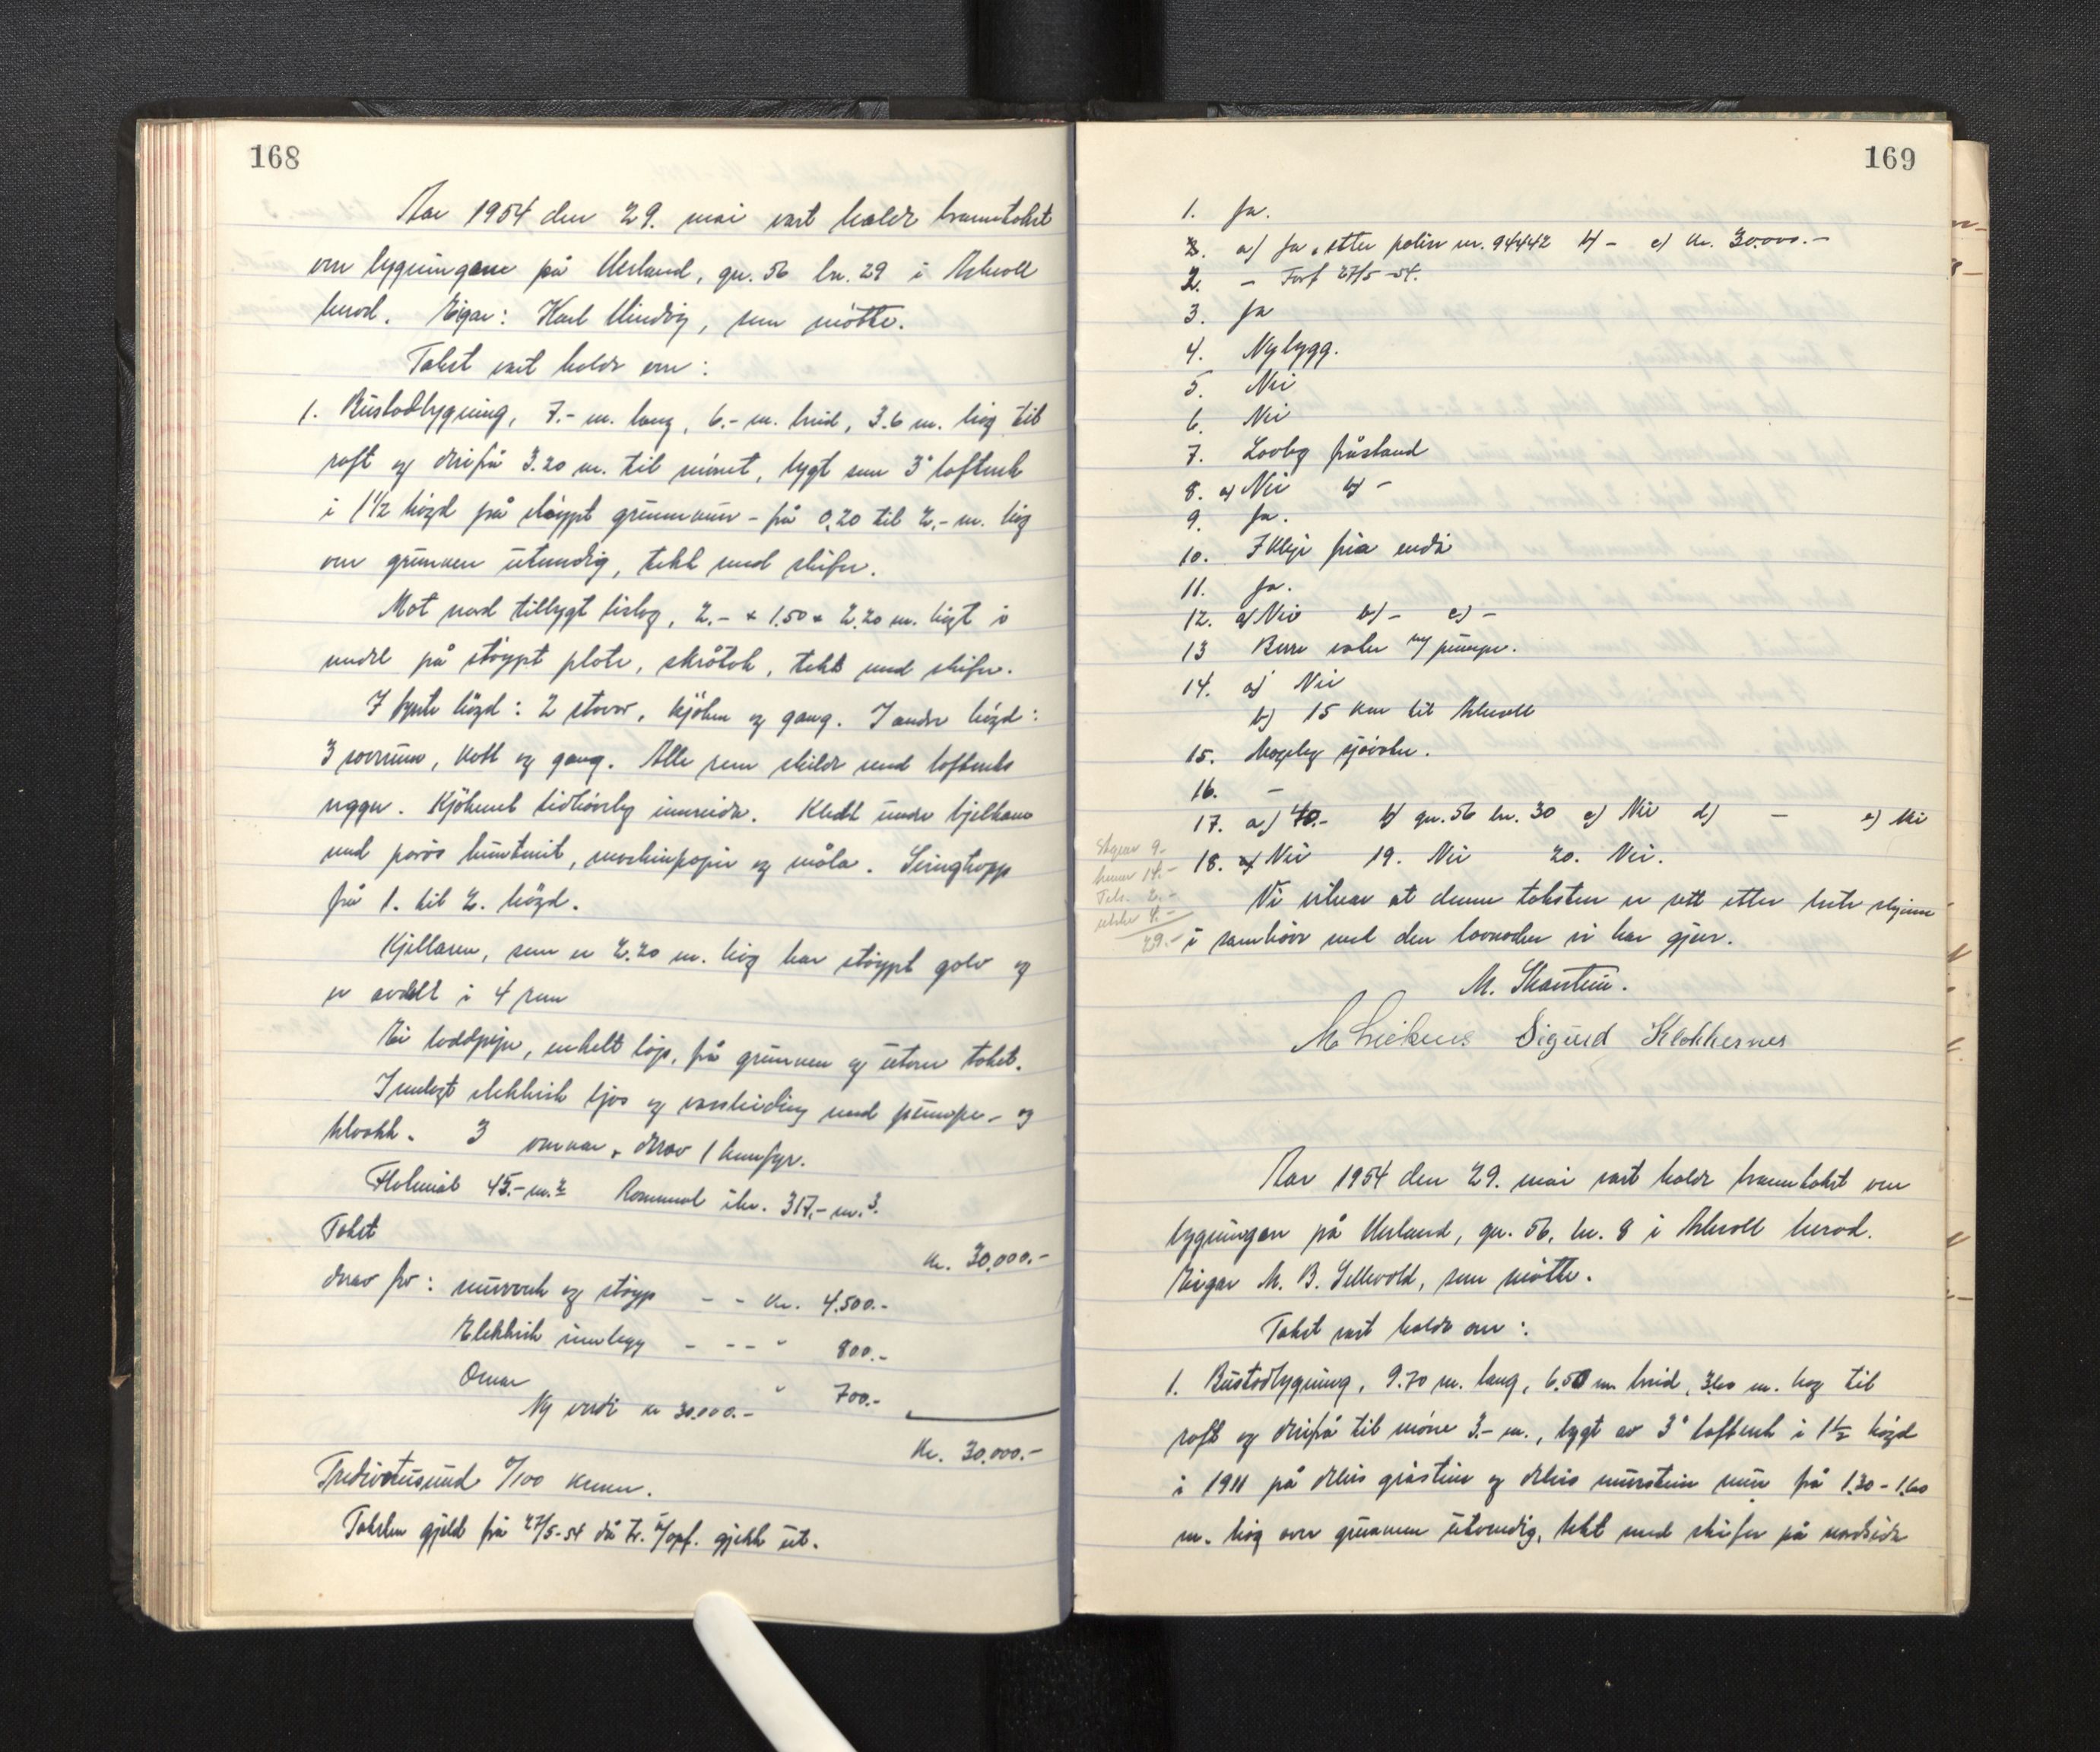 168
Aar 1954 den 29. mai vart haldt branntakst
over bygningane på Urland, gn. 56 br. 29 i Askvoll
herad. Eigar: Karl Vindvig, som møtte.
Takst vart haldt over:
1. Bustadbygning, 7.- m. lang, 6.- m. breid, 3.6 m. høg til
raft og derifrå 3.20 m. til mønet, bygt som 3" loftverk
i 1 1/2 høgd på støypt grunnmur - frå 0.20 til 2.- m. høg
over grunnen utvendig, tekt med skifer.
Mot nord tilbygt bislag, 2.- x 1.50 x 2.20 m. høgt i
medel på støypt plate, skråtak, tekt med skifer.
I fyrste høgd: 2 stover, kjøken og gang. I andre høgd:
3 soverum, kott og gang. Alle rom skilde med loftverks
veggar. Kjøkenet tidhøveleg innreida. Kledt under bjelkane
med porøs huntonit, maskinpapir og måla. Svingtrapp
frå 1. til 2. høgd.
Kjellaren, som er 2.20 m. høg har støypt golv og
er avdelt i 4 rom
Ei loddpipe, enkelt løp, frå grunnen og utover taket.
Innlagt elektrisk ljos og vassleiding med pumpe- og
kloakk. 3 omnar, derav 1 komfyr.
Flatemål 45.- m.2 Rommål ikr. 317.- m.3.
Takst kr. 30.000.-
derav for: murverk og støyp - - kr. 4.500.-
Elektrisk innlegg - - - " 800.-
Omnar " 700.-
Ny verdi kr 30.000.-
Kr. 30.000.-
Tredivetusund 0/100 kroner.
Taksten gjeld frå 27/5-54 då br. u/oppf. gjekk ut.
169
1. Ja.
2. a) Ja, etter polise nr. 94442 b) - c) kr. 30.000.-
2. - Forf 27/5-54.
3. Ja
4. Nybygg.
5. Nei
6. Nei
7. Lovleg påstand
8. a) Nei b) -
9. Ja.
10. Ikkje frå enda
11. Ja.
12. a) Nei b) - c) -
13 Berre vatn m/ pumpe.
14. a) Nei
b) 15 km til Askvoll
15. Mogeleg sjøvatn.
16. -
17. a) 40.- b) gn. 56 br. 30 c) Nei d) - e) Nei
18. Nei 19. Nei 20. Nei.
Vi vitnar at denne taksten er sett etter beste skjønn
i samhøve med den lovnaden vi har gjeve.
29.-
M. Skarstein.
Sigurd Klokkernes
Aar 1954 den 29. mai vart haldt branntakst over
bygningane på Urland, gn. 56, br. 8 i Askvoll herad.
Eigar M. B. Sellevold, som møtte.
Takst vart haldt over:
1. Bustadbygning, 9.70 m. lang, 6.50 m. breid, 3.60 m. høg til
raft og derifrå til møne 3.- m., bygt av 3" loftverk i 1 1/2 høgd
i 1911 på delvis gråstein og delvis murstein mur frå 1.30 - 1.60
m. høg over grunnen utvendig, tekt med skifer på nordsida